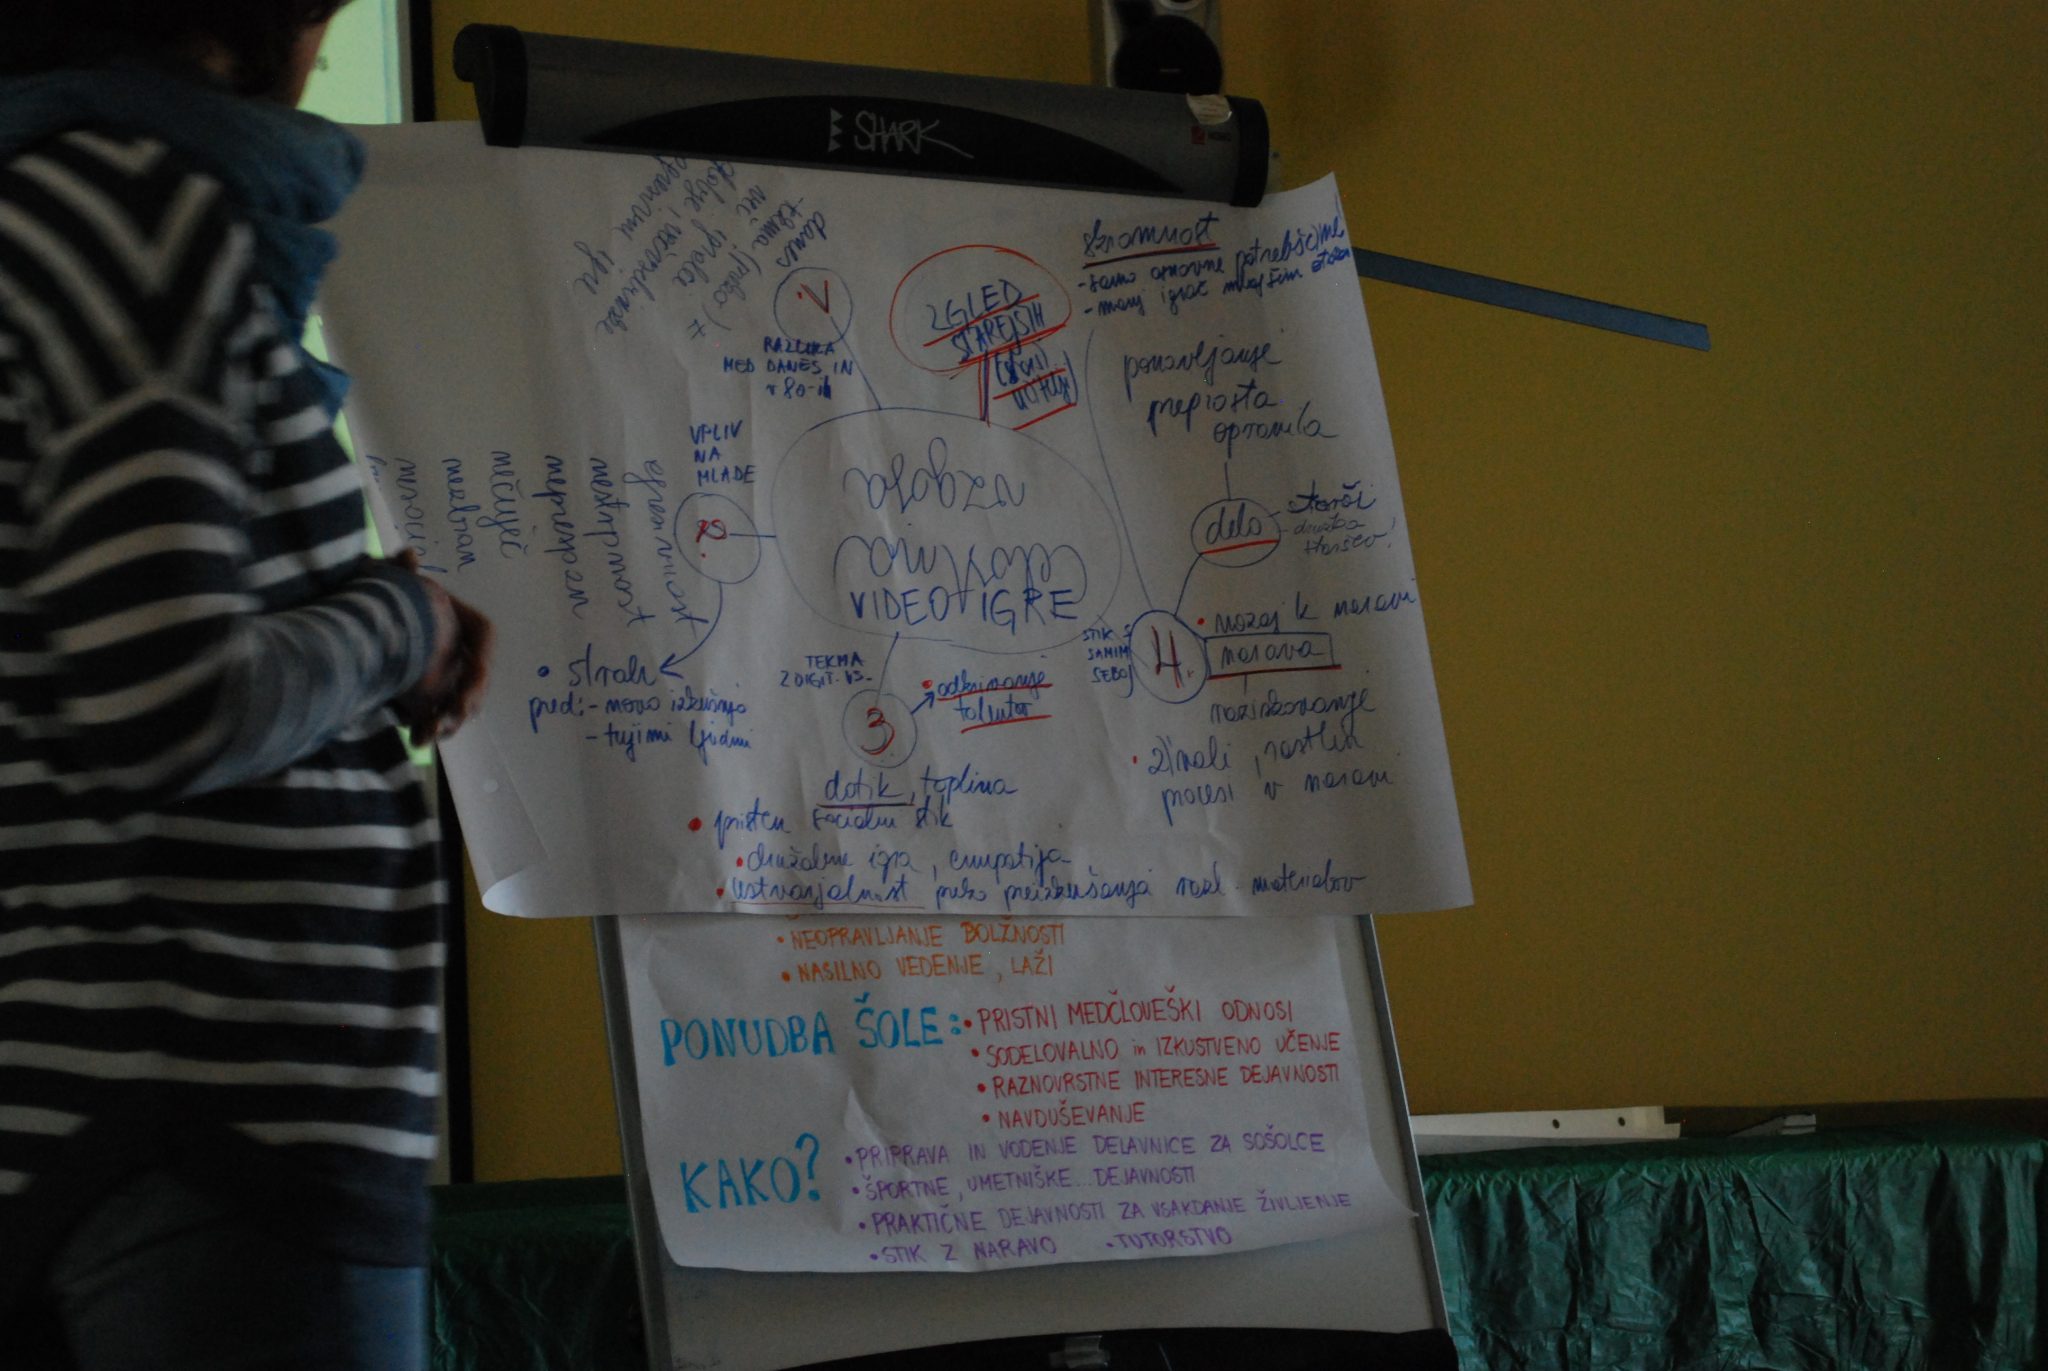 SHARK
danes
skromnost
- samo osnovne potrebščine
- manj igrač mlajšim otrokom
1.
ZGLED
STAREJŠIH
RAZLIKA
MED DANES IN
v 80-ih
ponavljanje
preprosta
opravila
VPLIV
NA
MLADE
vzgoja
celostna
VIDEO IGRE
egocentričnost
nestrpnost
neprespan
nezbran
2.
delo
- starši
TEKMA
Z DIGIT.
STIK S
SAMIM
SEBOJ
4.
• nazaj k naravi
narava
raziskovanje
• živali, rastlin
procesi v naravi
• strah
pred: - novo izkušnjo
- tujimi ljudmi
3
• odkrivanje
talentov
dotik, toplina
• pristen socialni stik
• družabne igra, empatija
• ustvarjalnost preko preizkušanja razl. materialov
• NEOPRAVLJANJE DOLŽNOSTI
• NASILNO VEDENJE, LAŽI
PONUDBA ŠOLE: • PRISTNI MEDČLOVEŠKI ODNOSI
• SODELOVALNO in IZKUSTVENO UČENJE
• RAZNOVRSTNE INTERESNE DEJAVNOSTI
• NAVDUŠEVANJE
KAKO? • PRIPRAVA IN VODENJE DELAVNICE ZA SOŠOLCE
• ŠPORTNE, UMETNIŠKE... DEJAVNOSTI
• PRAKTIČNE DEJAVNOSTI ZA VSAKDANJE ŽIVLJENJE
• STIK Z NARAVO • TUTORSTVO